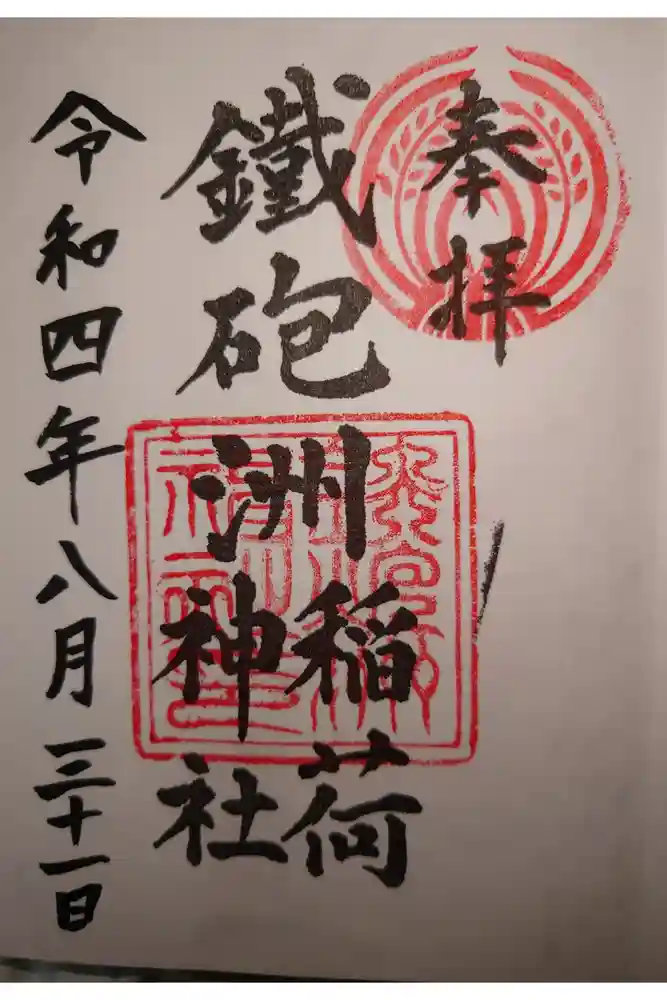 奉拝
鐵砲洲
稲荷
神社
令和四年八月三十一日